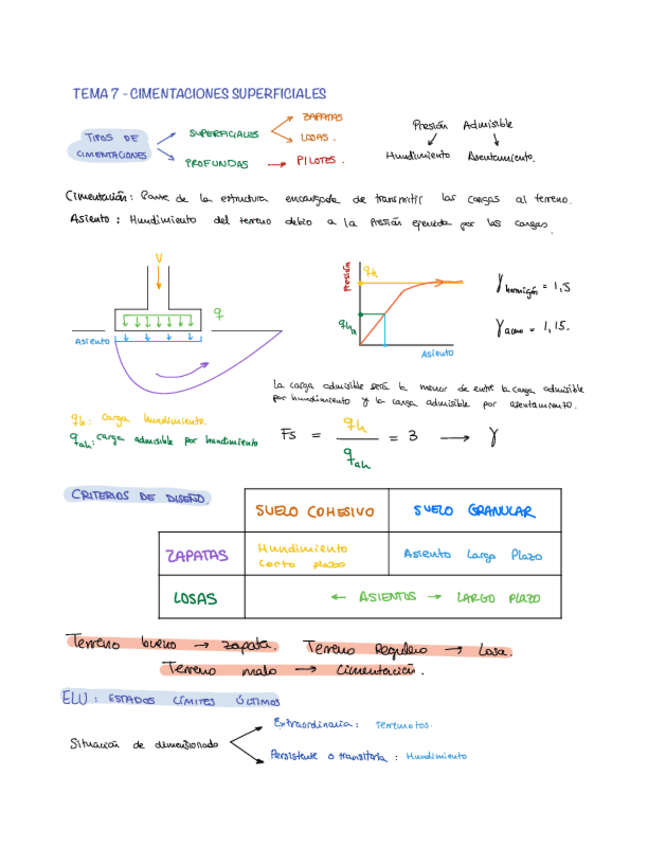 TEMA 7 - CIMENTACIONES SUPERFICIALES
TIPOS DE CIMENTACIONES
SUPERFICIALES
ZAPATAS
LOSAS.
PROFUNDAS → PILOTES.
Presión Admisible
Hundimiento Asentamiento.
Cimentación: Parte de la estructura encargada de transmitir las cargas al terreno.
Asiento: Hundimiento del terreno debio a la Presión ejercida por las cargas.
V
q
Asiento
Presión
qh
qha
Asiento
γ hormigón = 1,5
γ acero = 1,15.
La carga admisible será la menor de entre la carga admisible
por hundimiento y la carga admisible por asentamiento.
qh: Carga hundimiento.
qah: Carga admisible por hundimiento
Fs = qh / qah = 3 → γ
CRITERIOS DE DISEÑO.
SUELO COHESIVO SUELO GRANULAR
ZAPATAS Hundimiento Corto plazo Asiento Largo Plazo
LOSAS ← ASIENTOS → LARGO PLAZO
Terreno bueno → zapata. Terreno Regulero → Losa.
Terreno malo → Cimentación.
ELU: ESTADOS LÍMITES ÚLTIMOS
Situación de dimensionado
Extraordinaria: Terremotos.
Persistente o transitoria: Hundimiento